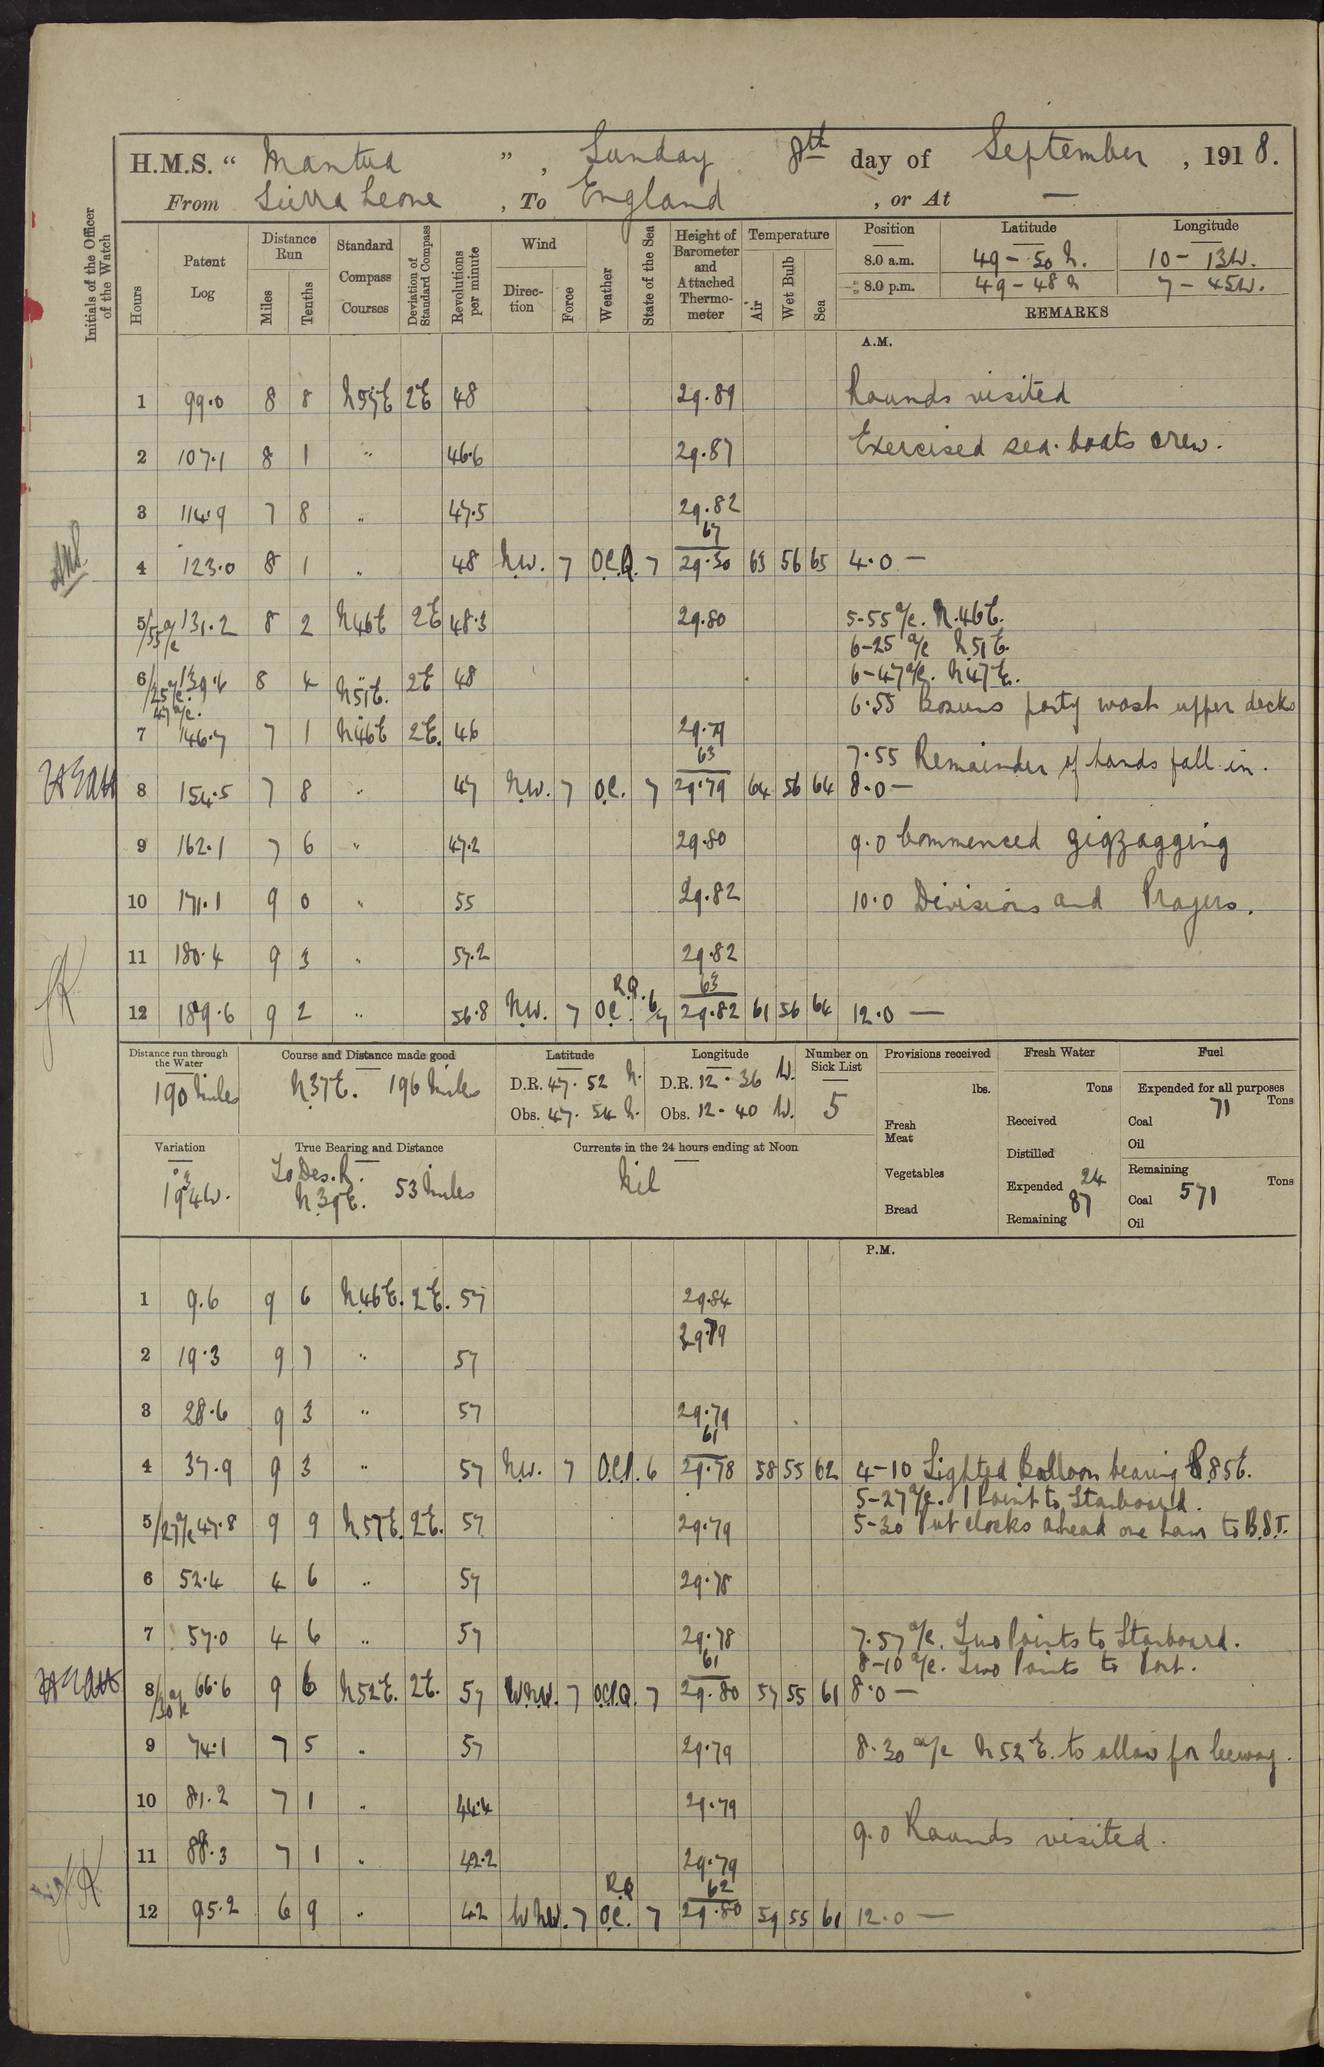 H.M.S. "Mantua", Sunday 8th day of September, 1918.
From Sierra Leone, To England, or At —
Initials of the Officer of the Watch
Hours Patent Log Distance Run Miles Tenths Standard Compass Courses Deviation of Standard Compass Revolutions per minute Wind Direction Force Weather State of the Sea Height of Barometer and Attached Thermometer Temperature Air Wet Bulb Sea Position Latitude Longitude
8.0 a.m. 49-50 N. 10-13W.
8.0 p.m. 49-48 N 7-45W.
REMARKS
A.M.
1 99.0 8 8 N55E 2E 48 29.89 Rounds visited
2 107.1 8 1 " 46.6 29.87 Exercised sea-boats crew.
3 114.9 7 8 " 47.5 29.82
4 123.0 8 1 " 48 N.W. 7 O.C.Q. 7 67 29.80 63 56 65 4.0 —
5/55 a/c 131.2 8 2 N46E 2E 48.3 29.80 5-55 a/c. N.46E.
6-25 a/c N51E.
6/25 a/c. 47 a/c. 139.6 8 4 N51E. 2E 48 6-47 a/c. N47E.
6.55 Bosuns party wash upper decks
7 146.7 7 1 N46E 2E. 46 29.79
7.55 Remainder of hands fall-in.
8 154.5 7 8 " 47 N.W. 7 O.C. 7 63 29.79 64 56 64 8.0 —
9 162.1 7 6 " 47.2 29.80 9.0 Commenced zigzagging
10 171.1 9 0 " 55 29.82 10.0 Divisions and Prayers.
11 180.4 9 3 " 57.2 29.82
12 189.6 9 2 " 56.8 N.W. 7 O.C. R.Q. 6/7 63 29.82 61 56 64 12.0 —
Distance run through the Water Course and Distance made good Latitude Longitude Number on Sick List Provisions received Fresh Water Fuel
190 Miles N.37E. 196 Miles D.R. 47.52 N. D.R. 12.36 W. 5 lbs. Tons Expended for all purposes Tons
Obs. 47.54 N. Obs. 12-40 W. Fresh Meat Received Coal 71
Oil
Variation True Bearing and Distance Currents in the 24 hours ending at Noon Vegetables Distilled Remaining Tons
To Des. R. N.39E. 53 Miles Nil Expended 24 Coal 571
Bread Remaining 87 Oil
P.M.
1 9.6 9 6 N.46E. 2E. 57 29.84
2 19.3 9 7 " 57 29.79
3 28.6 9 3 " 57 29.79
4 37.9 9 3 " 57 N.W. 7 6 61 29.78 58 55 62 4-10 Sighted Balloon bearing 85E.
5-27 a/c. 1 Point to Starboard.
5/27 a/c 47.8 9 9 N.57E. 2E. 57 29.79 5-30 Put clocks ahead one hour to B.S.T.
6 52.4 4 6 " 57 29.78
7 57.0 4 6 " 57 29.78 7.57 a/c. Two Points to Starboard.
8-10 a/c. Two Points to Port.
8/30 a/c 66.6 9 6 N52E. 2E. 57 W.N.W. 7 O.C.P.Q. 7 61 29.80 57 55 61 8.0 —
9 74.1 7 5 " 57 29.79 8.30 a/c N52E. to allow for leeway.
10 81.2 7 1 " 44.4 29.79
9.0 Rounds visited.
11 88.3 7 1 " 42.2 29.79
12 95.2 6 9 " 42 W.N.W. 7 O.C. R.Q 7 62 29.80 59 55 61 12.0 —